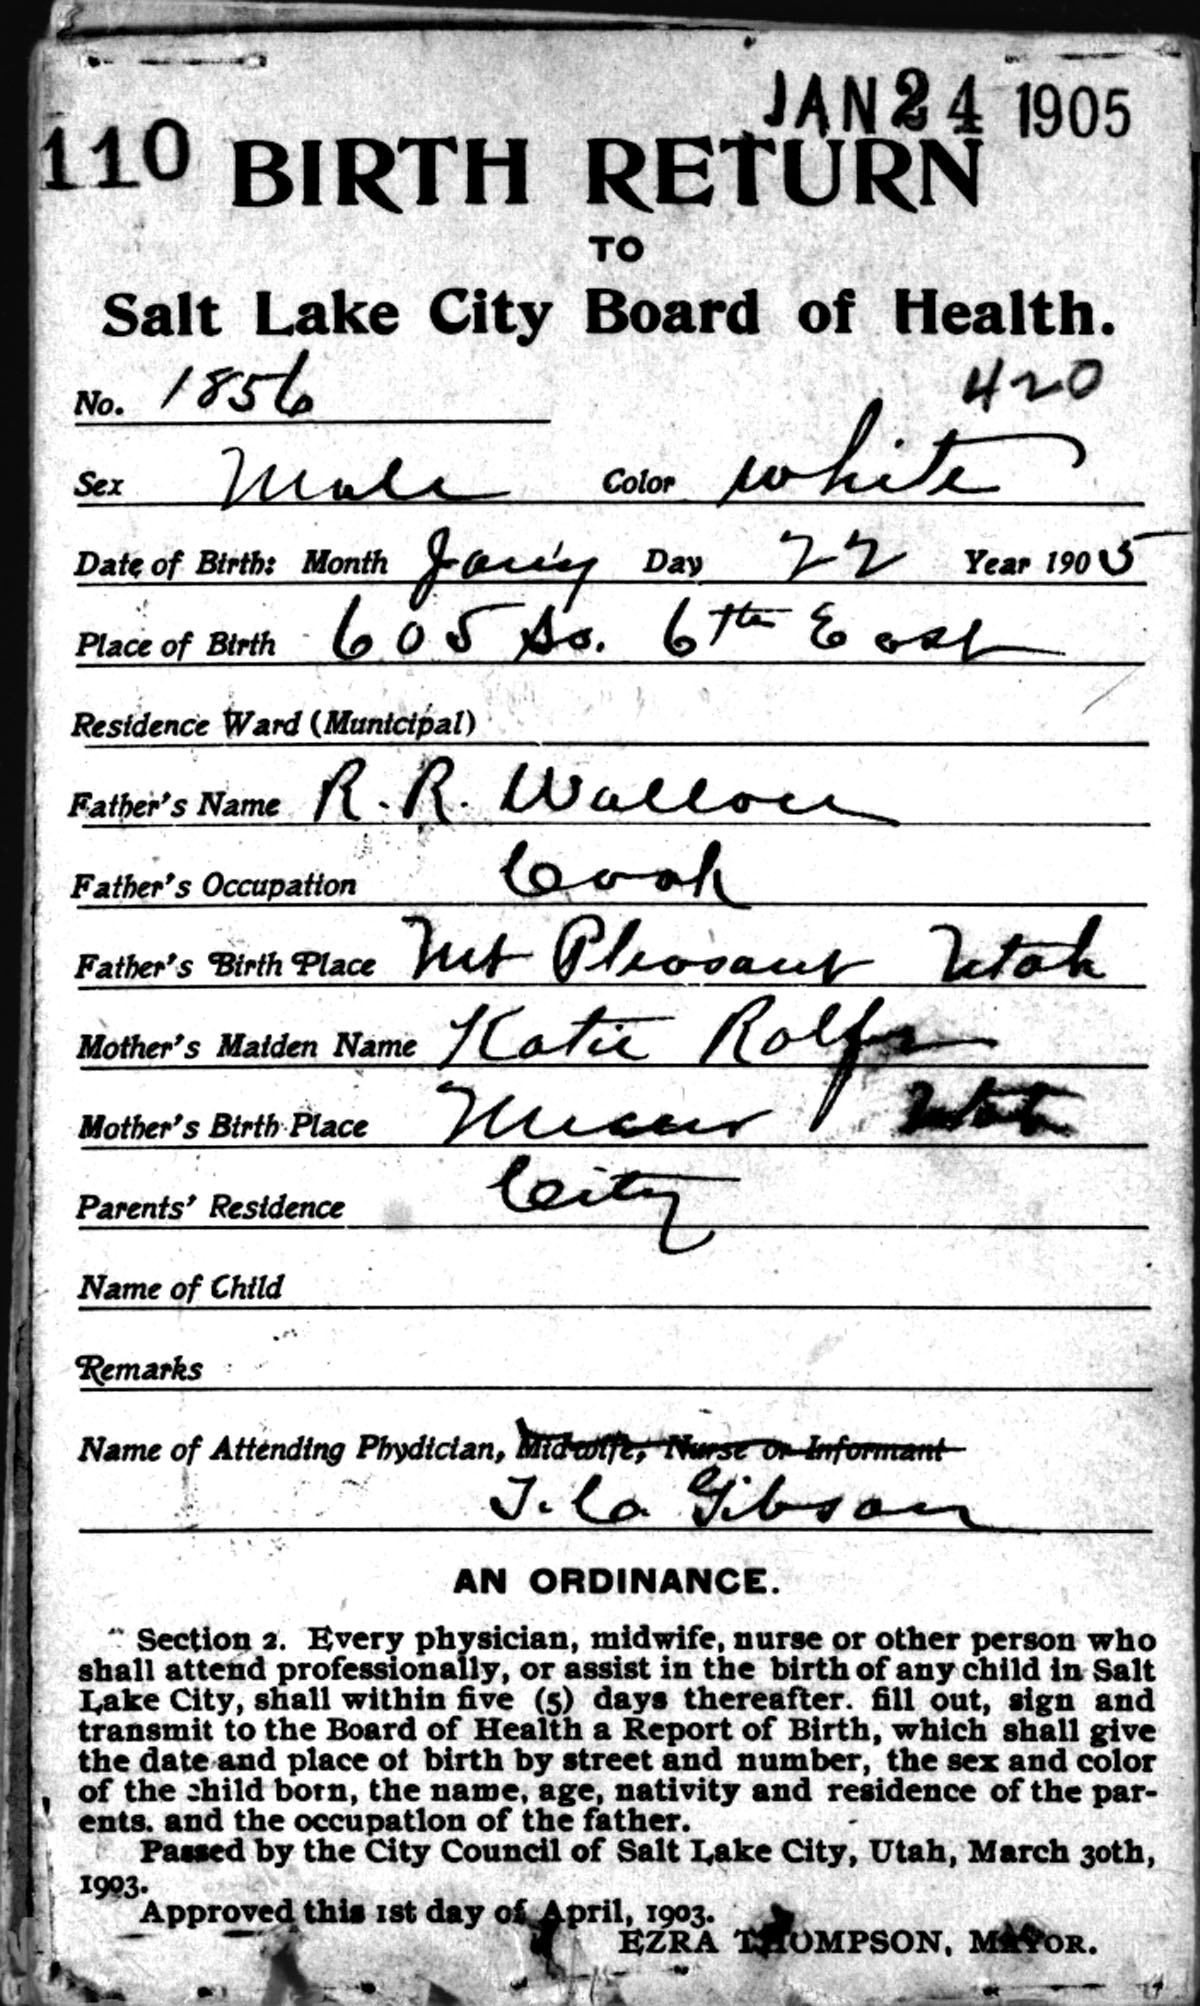 JAN 24 1905
110 BIRTH RETURN
TO
Salt Lake City Board of Health.
No. 1856 420
Sex Male Color white
Date of Birth: Month Jan'y Day 22 Year 1905
Place of Birth 605 So. 6th East
Residence Ward (Municipal)
Father's Name R. R. Wallace
Father's Occupation Cook
Father's Birth Place Mt Pleasant Utah
Mother's Maiden Name Katie Rolfe
Mother's Birth Place Utah
Parents' Residence City
Name of Child
Remarks
Name of Attending Phydician, Midwife, Nurse or Informant
Gibson
AN ORDINANCE.
Section 2. Every physician, midwife, nurse or other person who
shall attend professionally, or assist in the birth of any child in Salt
Lake City, shall within five (5) days thereafter. fill out, sign and
transmit to the Board of Health a Report of Birth, which shall give
the date and place of birth by street and number, the sex and color
of the child born, the name, age, nativity and residence of the par-
ents. and the occupation of the father.
Passed by the City Council of Salt Lake City, Utah, March 30th,
1903.
Approved this 1st day of April, 1903.
EZRA THOMPSON, MAYOR.